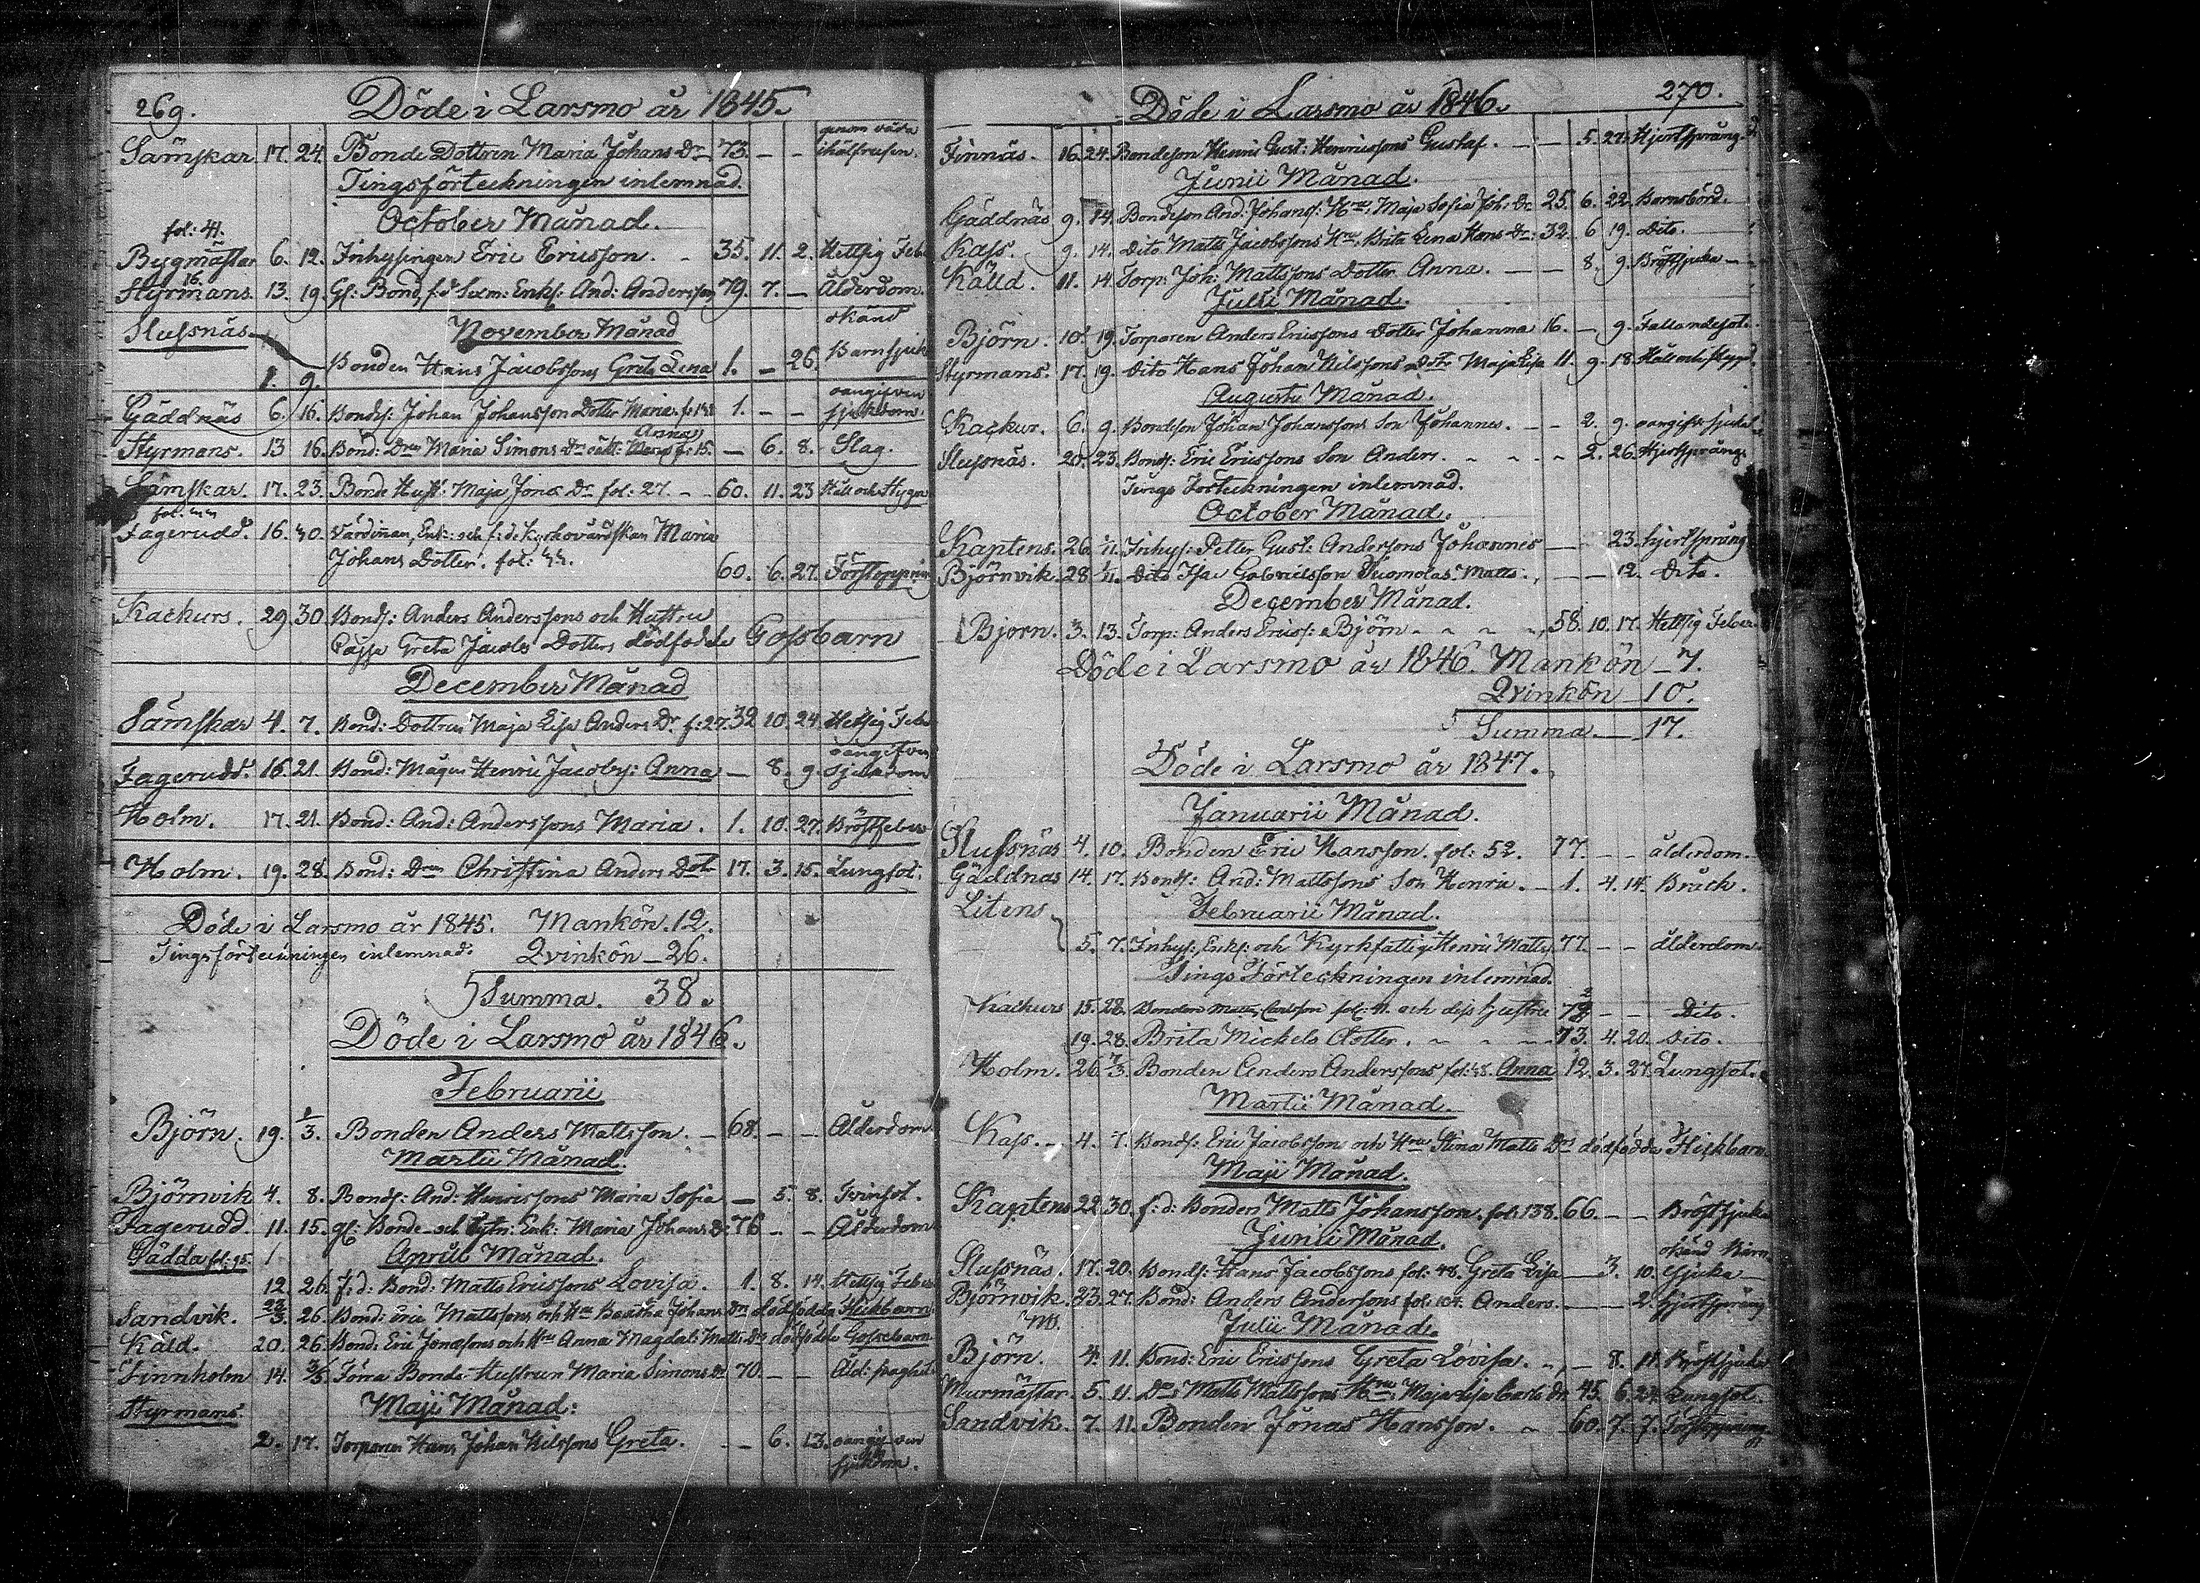 269. Döde i Larsmo år 1845.
Sämskar 17. 24. Bonde Dottren Maria Johans Dr 73. – – genom våda
ihälfrusen.
Tingsförteckningen inlemnad.
October Månad.
fol: 41.
Bygmästar 6. 12. Inhysingen Eric Ericsson. – 35. 11. 2. Hettsig Feber
16.
Styrmans. 13. 19. Gl: Bond, f.d. Sexm: Enkl: And: Andersson 79. 7. – Ålderdom.
Slussnäs November Månad okänd
1. 9. Bonden Hans Jacobssons Greta Lena 1. – 26. Barnsjuk
Gäddnäs 6. 16. Bonds: Johan Johansson Dotter Maria 1. – – oangifven
sjukdom.
Anna
Styrmans. 13 16. Bond: Drn Maria Simons Dr oäkt: f: 15. – 6. 8. Slag.
Sämskar. 17. 23. Bonde Hust: Maja Jonæ Dr fol: 27. – 60. 11. 23 Håll och Stygn
Fagerudd. 16. 30. Värdinnan, Enk: och f: d: Kyrkovärdskan Maria
Johans Dotter. fol: 60. 6. 27. Förstoppning
Kackurs. 29. 30. Bonds: Anders Anderssons och Hustru
Cajsa Greta Jacobs Dotters dödfödde Gossbarn
December Månad
Sämskar 4. 7. Bond: Dottren Maja Lisa Anders Dr f: 27. 32 10. 24. Hettsig Feber
Fagerudd. 16. 21. Bond: Mågen Henric Jacobs: Anna – 8. 9. oangifven
sjukdom
Holm. 17. 21. Bond: And: Anderssons Maria. 1. 10. 27. Bröstfeber
Holm. 19. 28. Bond: Drn Christina Anders Dotr 17. 3. 15. Lungsot.
Döde i Larsmo år 1845. Mankön. 12.
Tingsförteckningen inlemnad. Qvinkön – 26.
Summa. 38.
Döde i Larsmo år 1846.
Februarii
Björn. 19. 1/3. Bonden Anders Mattsson. – 68. – – Ålderdom
Martii Månad.
Björnvik 4. 8. Bonds: And: Henrissons Maria Sofia – 5. 8. Tvinsot.
Fagerudd. 11. 15. gl: Bonde- och Enk: Maria Johans Dr 76 – – Ålderdom
Gädda fol: 95. Aprill Månad.
12 26. f: d: Bond: Matts Ericssons Lovisa. 1. 8. 14. Hettsig Feber
Sandvik. 22/3. 26. Bond: Eric Mattssons och Hru Beatha Johans Drs dödfödda Flickbarn
Käld. 20. 26. Bond: Eric Jonæsons och Hru Anna Magdal: Matts Drs dödfödde Gossebarn
Finnholm 14. 3/5. Förra Bonde Hustrun Maria Simons Dr 70. – – Åld:
Styrmans. Maji Månad:
2. 17. Torparen Hans Johan Nilssons Greta. – 6. 13. oangifven
sjukdom.
Döde i Larsmo år 1846. 270.
Finnäs. 16. 24. Bondeson Henric Gust: Henricssons Gustaf. – – 5. 27. Hjertsprång
Junii Månad.
Gäddnäs 9. 14. Bondeson And: Johans: Hru, Maja Sofia Joh: Dr 25. 6. 22. Barnsbörd.
Kass. 9. 14. Dito Matts Jacobssons Hru, Brita Lena Hans Dr: 32. 6 19. Dito.
Källd. 11. 14. Torp: Joh: Mattssons Dotter Anna. – – 8. 9. Bröstsjuka
Julii Månad.
Björn. 10. 19. Torparen Anders Ericssons Dotter Johanna 16. – 9. Fallandesot.
Styrmans. 17. 19. Dito Hans Johan Nilssons Dotr. Maja Lisa 11. 9. 18. Håll och stygn.
Augusti Månad.
Kackur. 6. 9. Bondeson Johan Johanssons Son Johannes. – – 2. 9. oangifv: sjukd
Slussnäs. 20. 23. Bonds: Eric Ericssons Son Anders. – – 2. 26. Hjertsprång.
Tings Förteckningen inlemnad.
October Månad.
Kaptens. 26. 1/11. Inhys: Petter Gust: Anderssons Johannes – – 23. hjertsprång
Björnvik. 28. 1/11. Dito Isac Gabrielsson Tuomolas Matts. – – 12. Dito.
December Månad.
Björn. 3. 13. Torp: Anders Ericss: Björn – – – 58. 10. 17. Hettsig Feber.
Döde i Larsmo år 1846. Mankön – 7.
Qvinkön 10.
Summa – 17.
Döde i Larsmo år 1847.
Januarii Månad.
Slussnäs 4. 10. Bonden Eric Hansson. fol: 52. 77. – – ålderdom.
Gäddnäs 14. 17. Bonds: And: Mattssons Son Henric. – 1. 4. 14. Bråck.
Litens Februarii Månad.
5. 7. Inhys: Enkl: och Kyrkfattig: Henric Matts 77. – – ålderdom
Tings Förteckningen inlemnad.
Kackurs 15. 28. Bonden Matts Carlsson fol: 11. och dess hustru – – Dito.
19. 28. Brita Mickels Dotter. – – – 73. 4. 20. Dito.
Holm. 26. 7/3. Bonden Anders Anderssons fol: 48. Anna 12. 3. 27. Lungsot.
Martii Månad.
Kass. 4. 7. Bonds: Eric Jacobsson och Hru Stina Matts Drs dödfödda Flickbarn
Maji Månad.
Kaptens 22 30. f: d: Bonden Matts Johansson. fol: 138. 66. – – Bröstsjuka
Junii Månad.
Slussnäs 17. 20. Bonds: Hans Jacobssons fol: 48. Greta Lisa – 3. 10. okänd Barn
sjuka
Björnvik. 23. 27. Bond: Anders Anderssons fol: 104. Anders. – – 2. hjertsprång
Julii Månad.
Björn. 4. 11. Bond: Eric Ericssons Greta Lovisa. – – 8. 11. Bröstsjuka
Murmästar. 5. 11. Do Matts Mattssons Hru, Maja Lisa Carls Dr. 45. 6. 24. Lungsot.
Sandvik. 7. 11. Bonden Jonas Hansson. – 60. 7. 7. Förstoppning